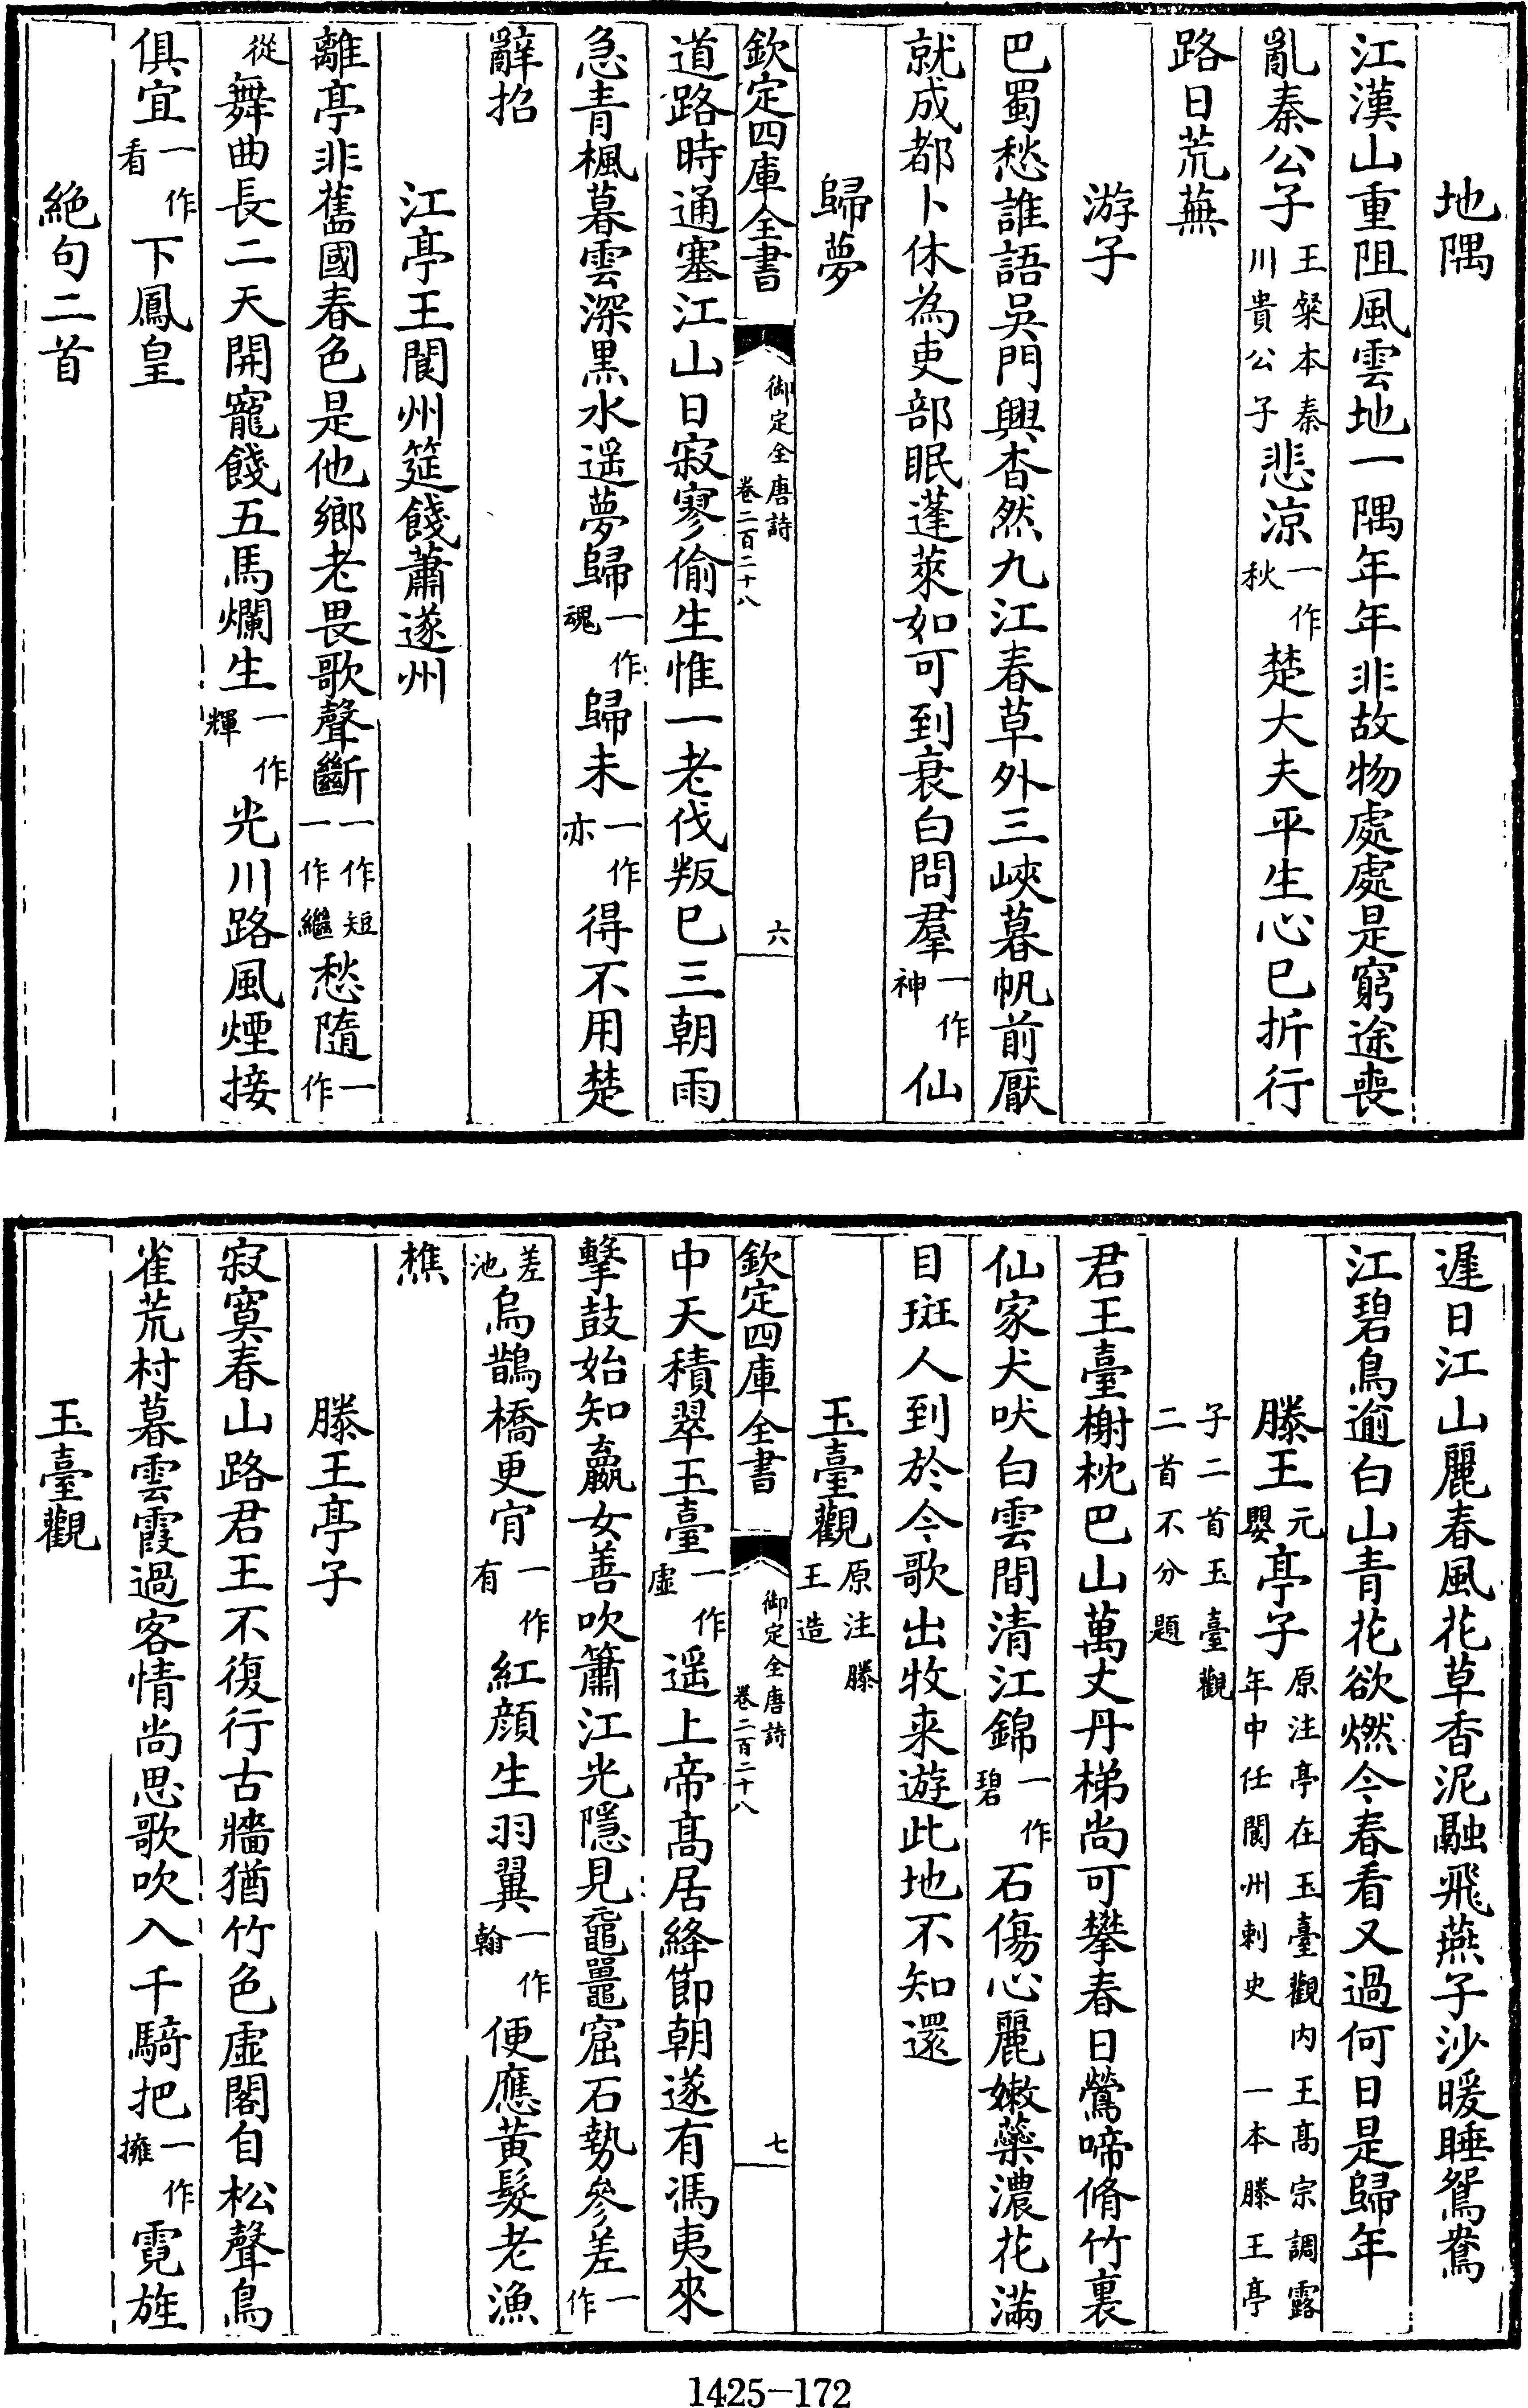 地隅
江漢山重阻風雲地一隅年年非故物處處是窮途喪
亂秦公子王粲本秦川貴公子悲涼一作秋楚大夫平生心已折行
路日荒蕪
游子
巴蜀愁誰語吳門興杳然九江春草外三峽暮帆前厭
就成都卜休為吏部眠蓬萊如可到衰白問羣一作神仙
歸夢
欽定四庫全書
御定全唐詩
卷二百二十八
六
道路時通塞江山日寂寥偷生惟一老伐叛已三朝雨
急青楓暮雲深黒水遥夢歸一作魂歸未一作亦得不用楚
辭招
江亭王閬州筵餞蕭遂州
離亭非舊國春色是他鄉老畏歌聲斷一作短一作繼愁隨一作
從舞曲長二天開寵餞五馬爛生一作輝光川路風煙接
俱宜一作看下鳳皇
絶句二首
遲日江山麗春風花草香泥融飛燕子沙暖睡鴛鴦
江碧鳥逾白山青花欲燃今春看又過何日是歸年
滕王元嬰亭子原注亭在玉臺觀内王高宗調露年中任閬州刺史 一本滕王亭
子二首玉臺觀二首不分題
君王臺榭枕巴山萬丈丹梯尚可攀春日鶯啼脩竹裏
仙家犬吠白雲間清江錦一作碧石傷心麗嫩蘂濃花滿
目斑人到於今歌出牧来遊此地不知還
玉臺觀原注滕王造
欽定四庫全書
御定全唐詩
卷二百二十八
七
中天積翠玉臺一作虛遥上帝髙居絳節朝遂有馮夷來
擊鼓始知嬴女善吹簫江光隱見黿鼉窟石勢參差一作
差池烏鵲橋更肎一作有紅顔生羽翼一作翰便應黄髮老漁
樵
滕王亭子
寂寞春山路君王不復行古牆猶竹色虛閣自松聲鳥
雀荒村暮雲霞過客情尚思歌吹入千騎把一作擁霓旌
玉臺觀
1425—172